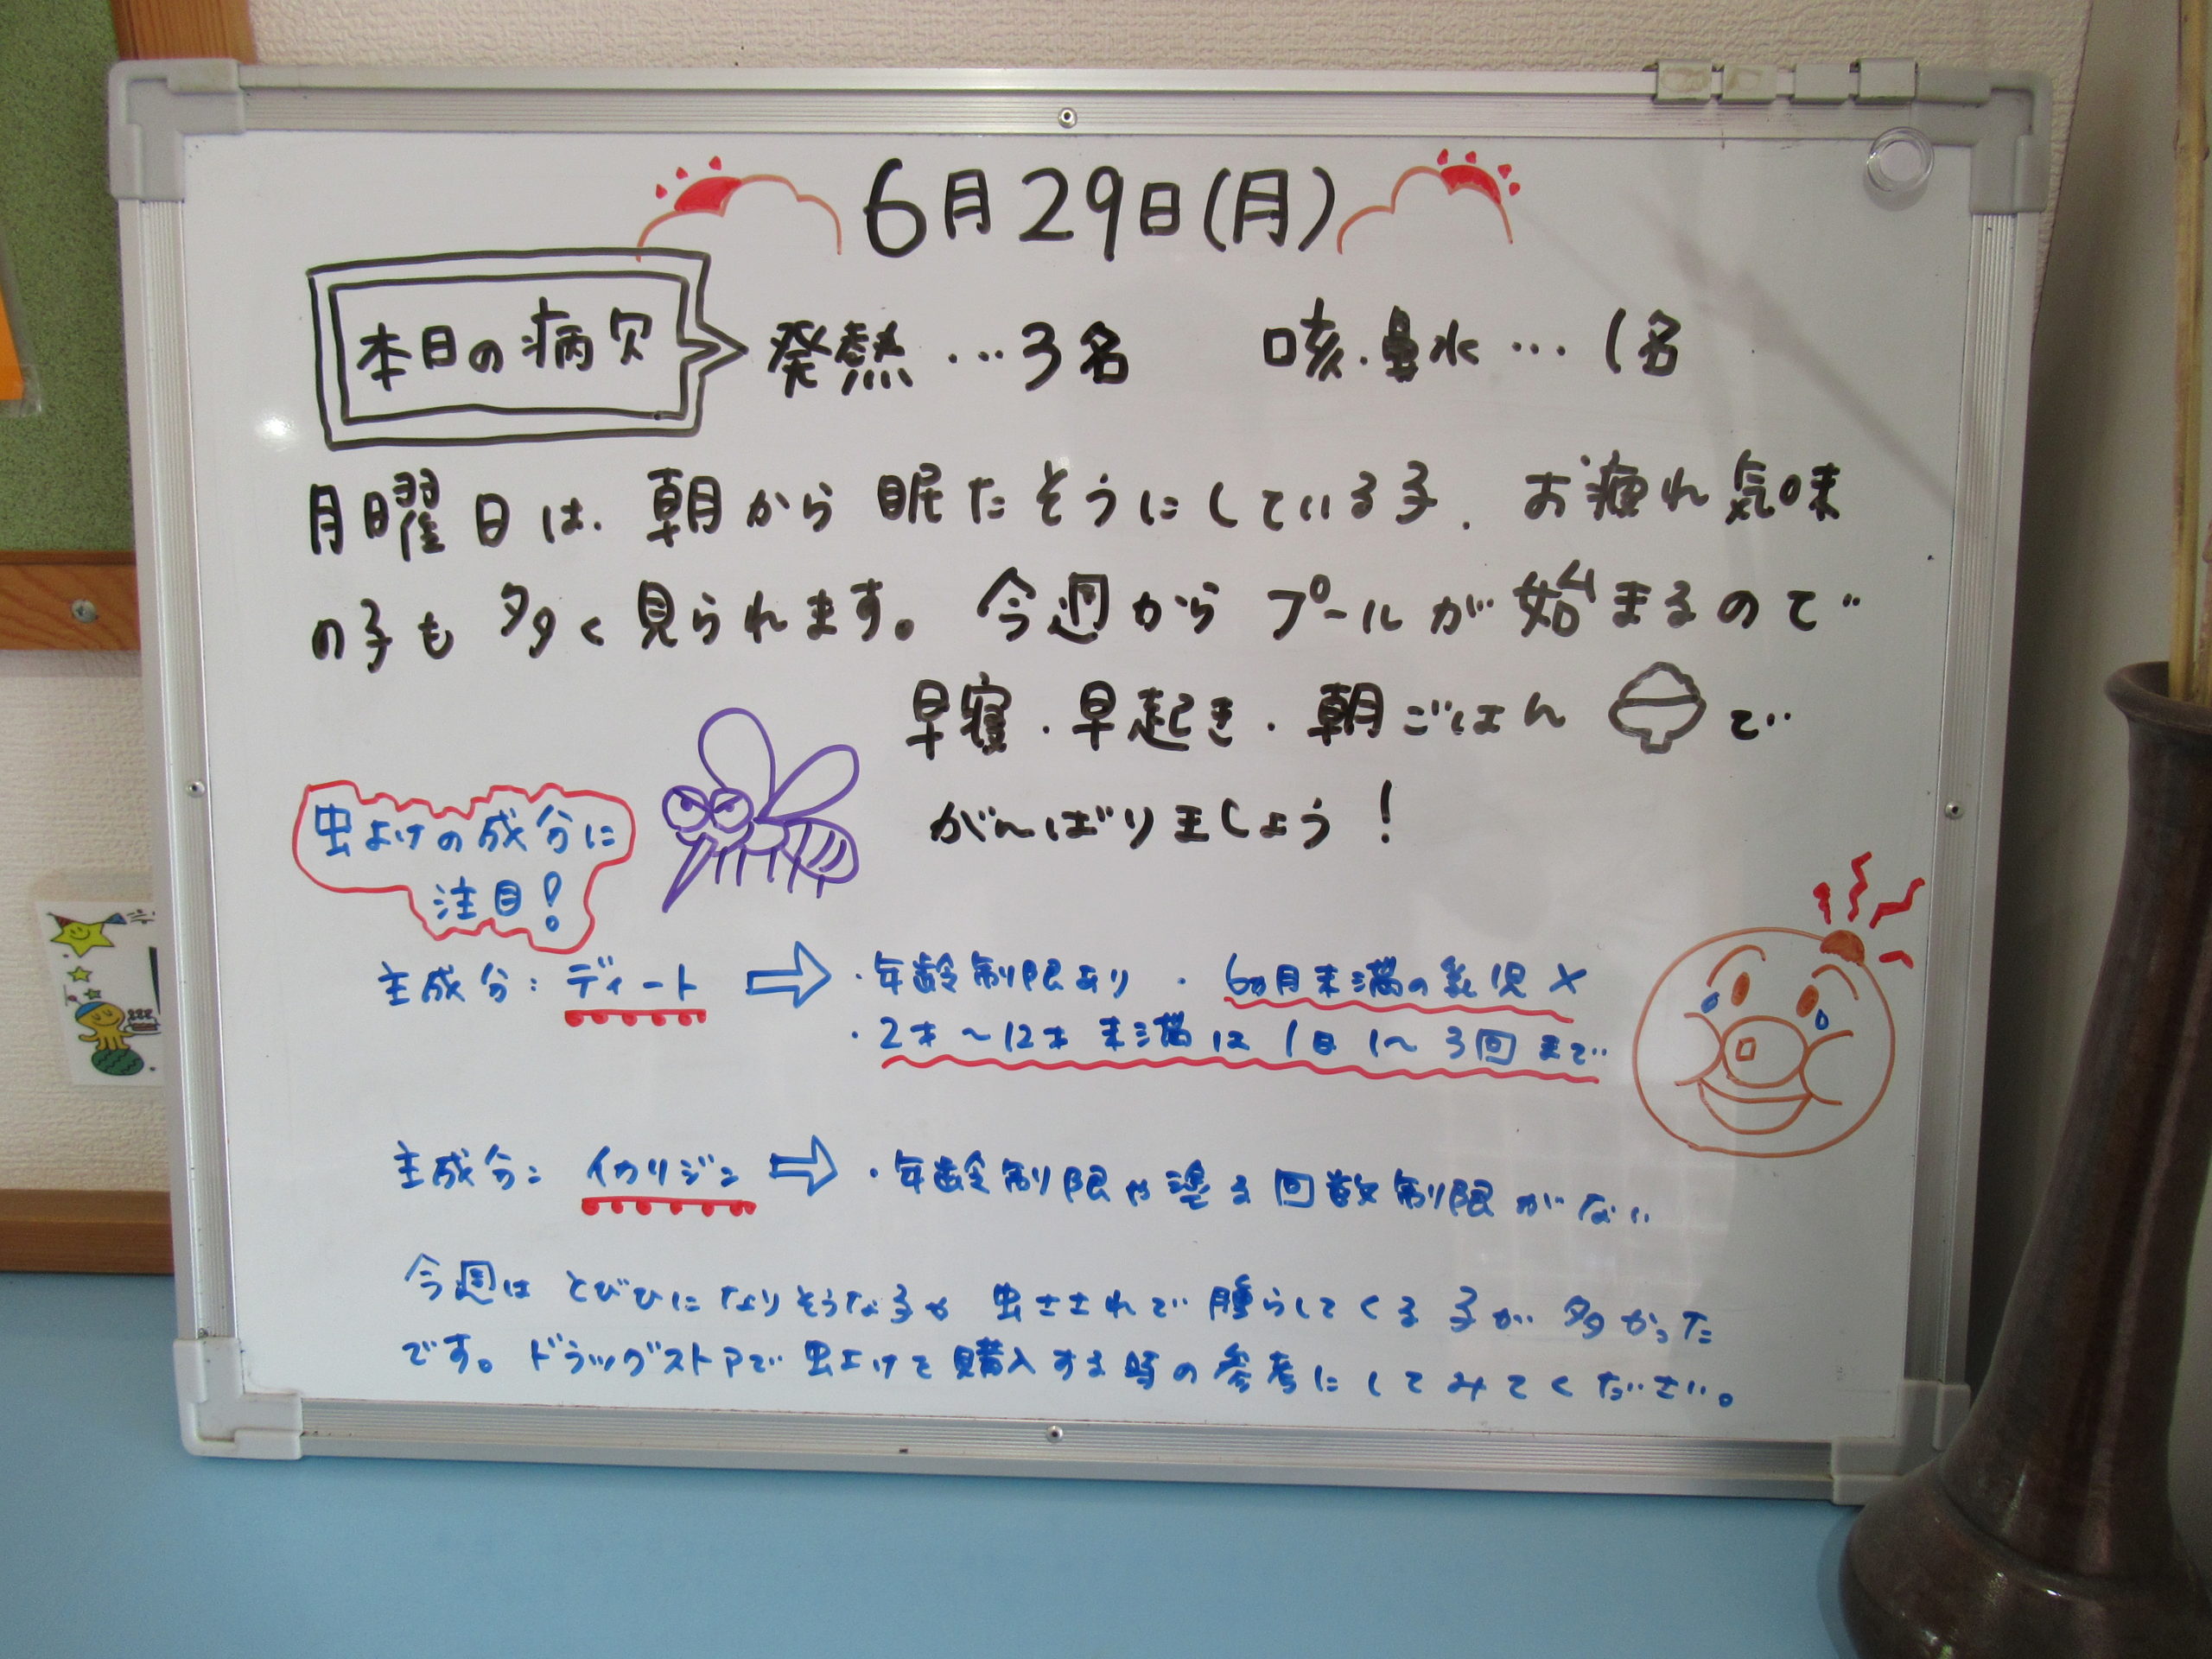 6月29日(月)
本日の病欠
発熱…3名 咳・鼻水…1名
月曜日は、朝から眠たそうにしている子、お疲れ気味
の子も多く見られます。今週からプールが始まるので
早寝・早起き・朝ごはんで
がんばりましょう!
虫よけの成分に
注目!
主成分:ディート ⇨ ・年齢制限あり ・6ヵ月未満の乳児×
・2才~12才未満は1日1~3回まで
主成分:イカリジン ⇨ ・年齢制限や塗る回数制限がない
今週はとびひになりそうな子や虫さされで腫らしてくる子が多かった
です。ドラッグストアで虫よけを購入する時の参考にしてみてください。